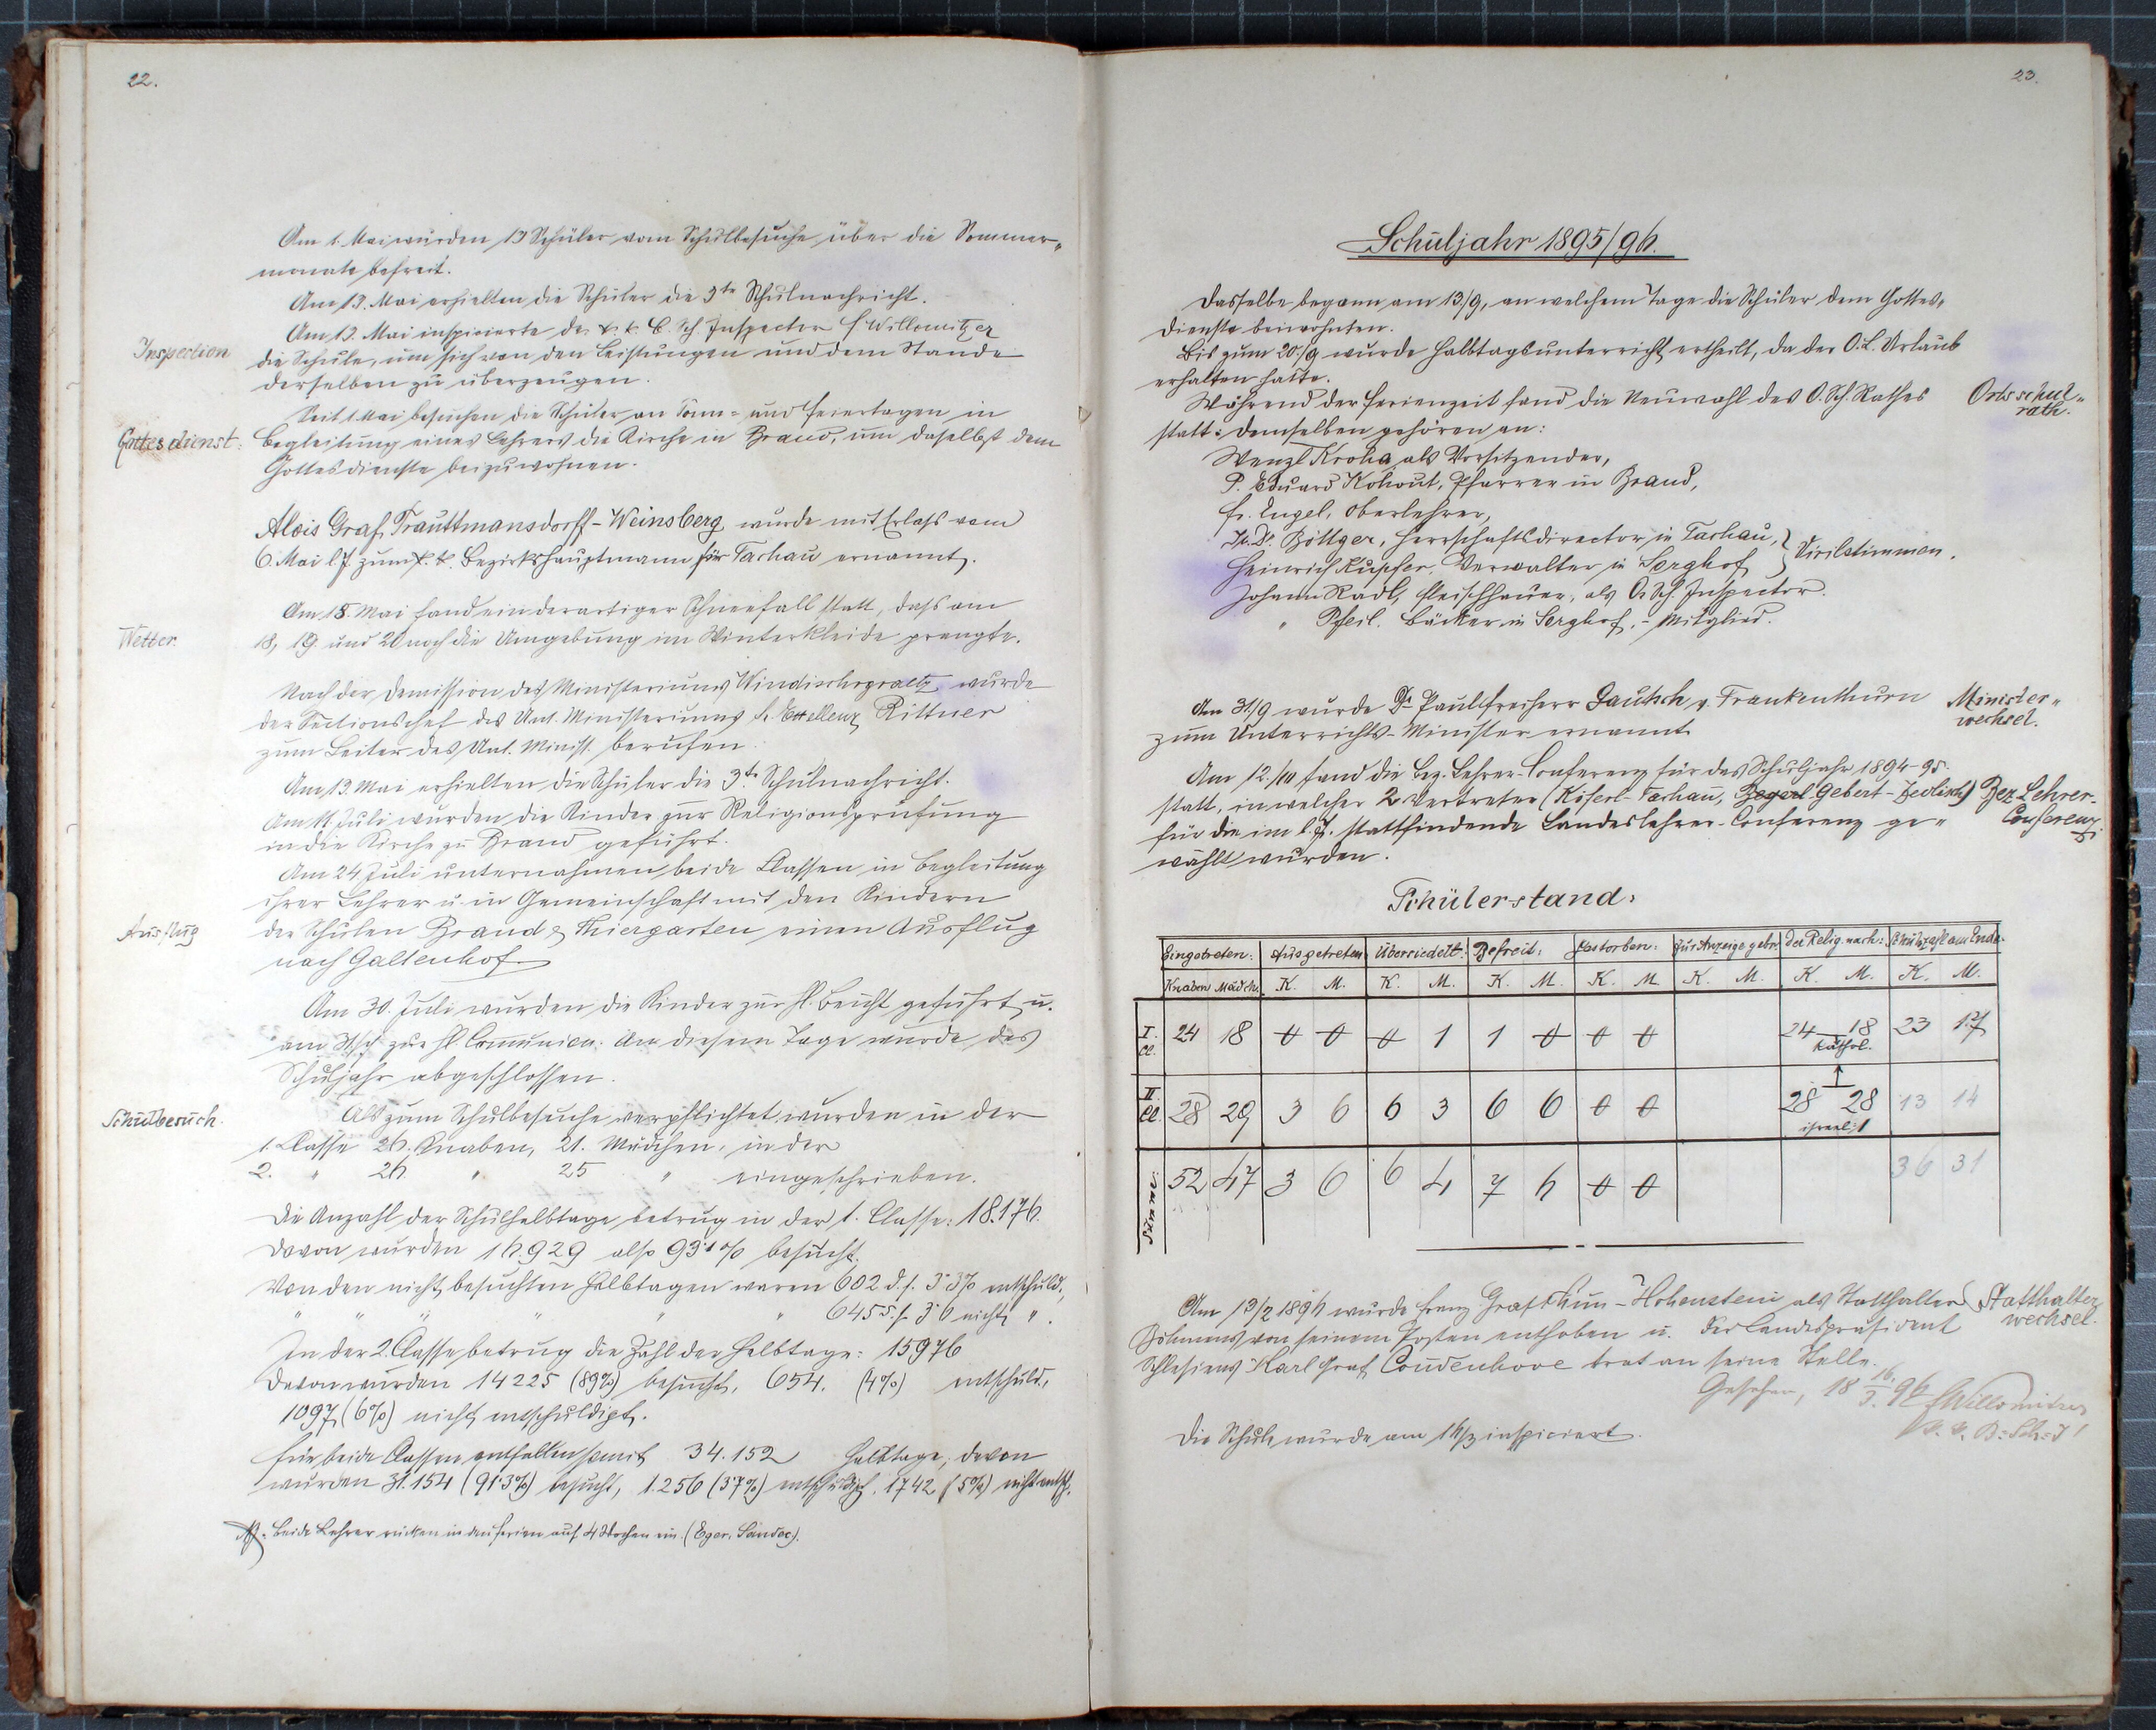 22.
Am 1. Mai wurden 13 Schüler vom Schulbesuche über die Sommer-
monate befreit.
Am 13. Mai erhielten die Schüler die 3te Schulnachricht.
Am 13. Mai inspicierte der k. k. B. Sch. Inspector F. Willomitzer
Inspection
die Schule, um sich von den Leistungen und dem Stande
derselben zu überzeugen.
Seit 1. Mai besuchen die Schüler an Sonn- und Feiertagen in
Gottesdienst:
Begleitung eines Lehrers die Kirche in Brand, um daselbst dem
Gottesdienste beizuwohnen.
Alois Graf Trauttmansdorff-Weinsberg wurde mit Erlaß vom
6. Mai l. J. zum k. k. Bezirkshauptmann für Tachau ernannt.
Am 18. Mai fand ein derartiger Schneefall statt, daß am
Wetter.
18, 19. und 20 noch die Umgebung im Winterkleide prangte.
Nach der Demission des Ministeriums Windischgraetz wurde
der Sectionschef des Unt. Ministeriums Se. Excellenz Rittner
zum Leiter des Unt. Minist. berufen.
Am 13. Mai erhielten die Schüler die 3te Schulnachricht.
Am 11. Juli wurden die Kinder zur Religionsprüfung
in die Kirche zu Brand geführt.
Am 24 Juli unternahmen beide Classen in Begleitung
ihrer Lehrer u. in Gemeinschaft mit den Kindern
Ausflug
der Schulen Brand & Thiergarten einen Ausflug
nach Galtenhof.
Am 30. Juli wurden die Kinder zur hl. Beicht geführt u.
am 31/7 zur hl. Communion. An diesem Tage wurde das
Schuljahr abgeschlossen.
Schulbesuch.
Als zum Schulbesuche verpflichtet wurden in der
1. Classe 26. Knaben, 21. Mädchen, in der
2. " 26 " 25 " eingeschrieben.
Die Anzahl der Schulhalbtage betrug in der 1. Classe: 18.176.
Davon wurden 16.929 also 93·1% besucht.
Von den nicht besuchten Halbtagen waren 602 d. s. 3·3% entschuld.,
" " " " " " 645 d. s. 3·6 nicht ".
In der 2. Classe betrug die Zahl der Halbtage: 15976
Davon wurden 14225 (89%) besucht, 654. (4%) entschuld.,
1097 (6%) nicht entschuldigt.
Für beide Classen entfallen somit 34.152 Halbtage; davon
wurden 31.154 (91·3%) besucht, 1.256 (3·7%) entschuldigt. 1742 (5%) nicht entsch.
Beide Lehrer rücken in den Ferien auf 4 Wochen ein. (Eger, Sandec).
23.
Schuljahr 1895/96.
Dasselbe begann am 13/9, an welchem Tage die Schüler dem Gottes-
dienste beiwohnten.
Bis zum 20./9 wurde Halbtagsunterricht ertheilt, da der O. L. Urlaub
erhalten hatte.
Während der Ferienzeit fand die Neuwahl des O. Sch. Rathes
Ortsschul-
rath.
statt: demselben gehören an:
Wenzl Kroha als Vorsitzender,
P. Eduard Kohout, Pfarrer in Brand,
Fr. Engel, Oberlehrer,
Dr. Böttger, Herrschaftsdirector in Tachau,
Heinrich Kupfer, Verwalter in Sorghof } Virilstimmen.
Johann Radl, Fleischhauer, als O. Sch. Inspector.
" Pfeil. Bäcker in Sorghof, - Mitglied.
Am 31/9 wurde Dr. Paul Freiherr Gautsch v. Frankenthurn
Minister-
wechsel.
zum Unterrichts-Minister ernannt.
Am 12./10 fand die Bez. Lehrer-Conferenz für das Schuljahr 1894-95.
statt, in welcher 2 Vertreter (Köferl-Tachau, Gebert-Zedlisch)
Bez. Lehrer-
Conferenz.
für die im l. J. stattfindende Landeslehrer-Conferenz ge-
wählt wurden.
Schülerstand:
Eingetreten: Ausgetreten: Übersiedelt: Befreit: Gestorben: Zur Anzeige gebr. Der Relig. nach: Schulzahl am Ende.
Knaben Mädch. K. M. K. M. K. M. K. M. K. M. K. M. K. M.
I. Cl. 24 18 0 0 0 1 1 0 0 0 24 18 kathol. 23 17
II Cl. 28 29 3 6 6 3 6 6 0 0 28 28 israel. 1 13 14
Summe: 52 47 3 6 6 4 7 6 0 0 36 31
Am 13/2 1896 wurde Franz Graf Thun-Hohenstein als Statthalter
Statthalter
wechsel.
Böhmens von seinem Posten enthoben u. der Landespräsident
Schlesiens Karl Graf Coudenhove trat an seine Stelle.
Gesehen, 18 16/3. 96 F Willomitzer
k. k. B.-Sch.-I
Die Schule wurde am 16/3 inspiciert.